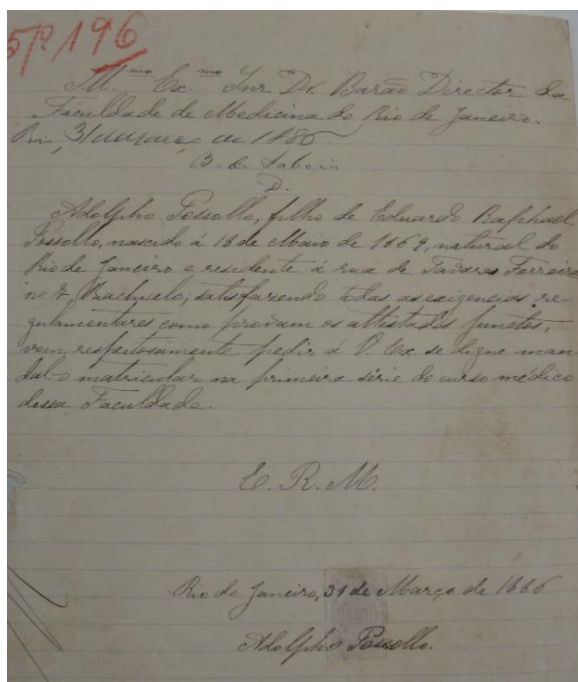 196
Ill.mo Ex.mo Snr. Dr. Barão Director da
Faculdade de Medicina do Rio de Janeiro.
Rio, 31 Março de 1886
B. de Saboia
D.
Adolpho Possollo, filho de Eduardo Raphael
Possollo, nascido á 18 de Maio de 1869, natural do
Rio de Janeiro e residente á rua de Tavares Ferreira
Riachuelo, satisfazendo todas as exigencias re
gulamentares como provam os attestados junctos,
vem respeitosamente pedir á V. Ex. se digne man
dal-o matricular na primeira série do curso médico
dessa Faculdade.
E. R. M.
Rio de Janeiro, 31 de Março de 1886
Adolpho Possollo.